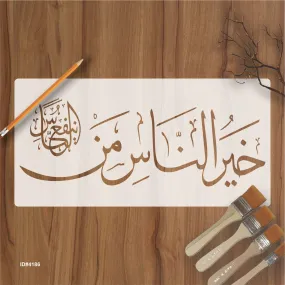 خَيرُ النَّاسِ مَن يَنفَعُ النَّاسَ
ID#4186